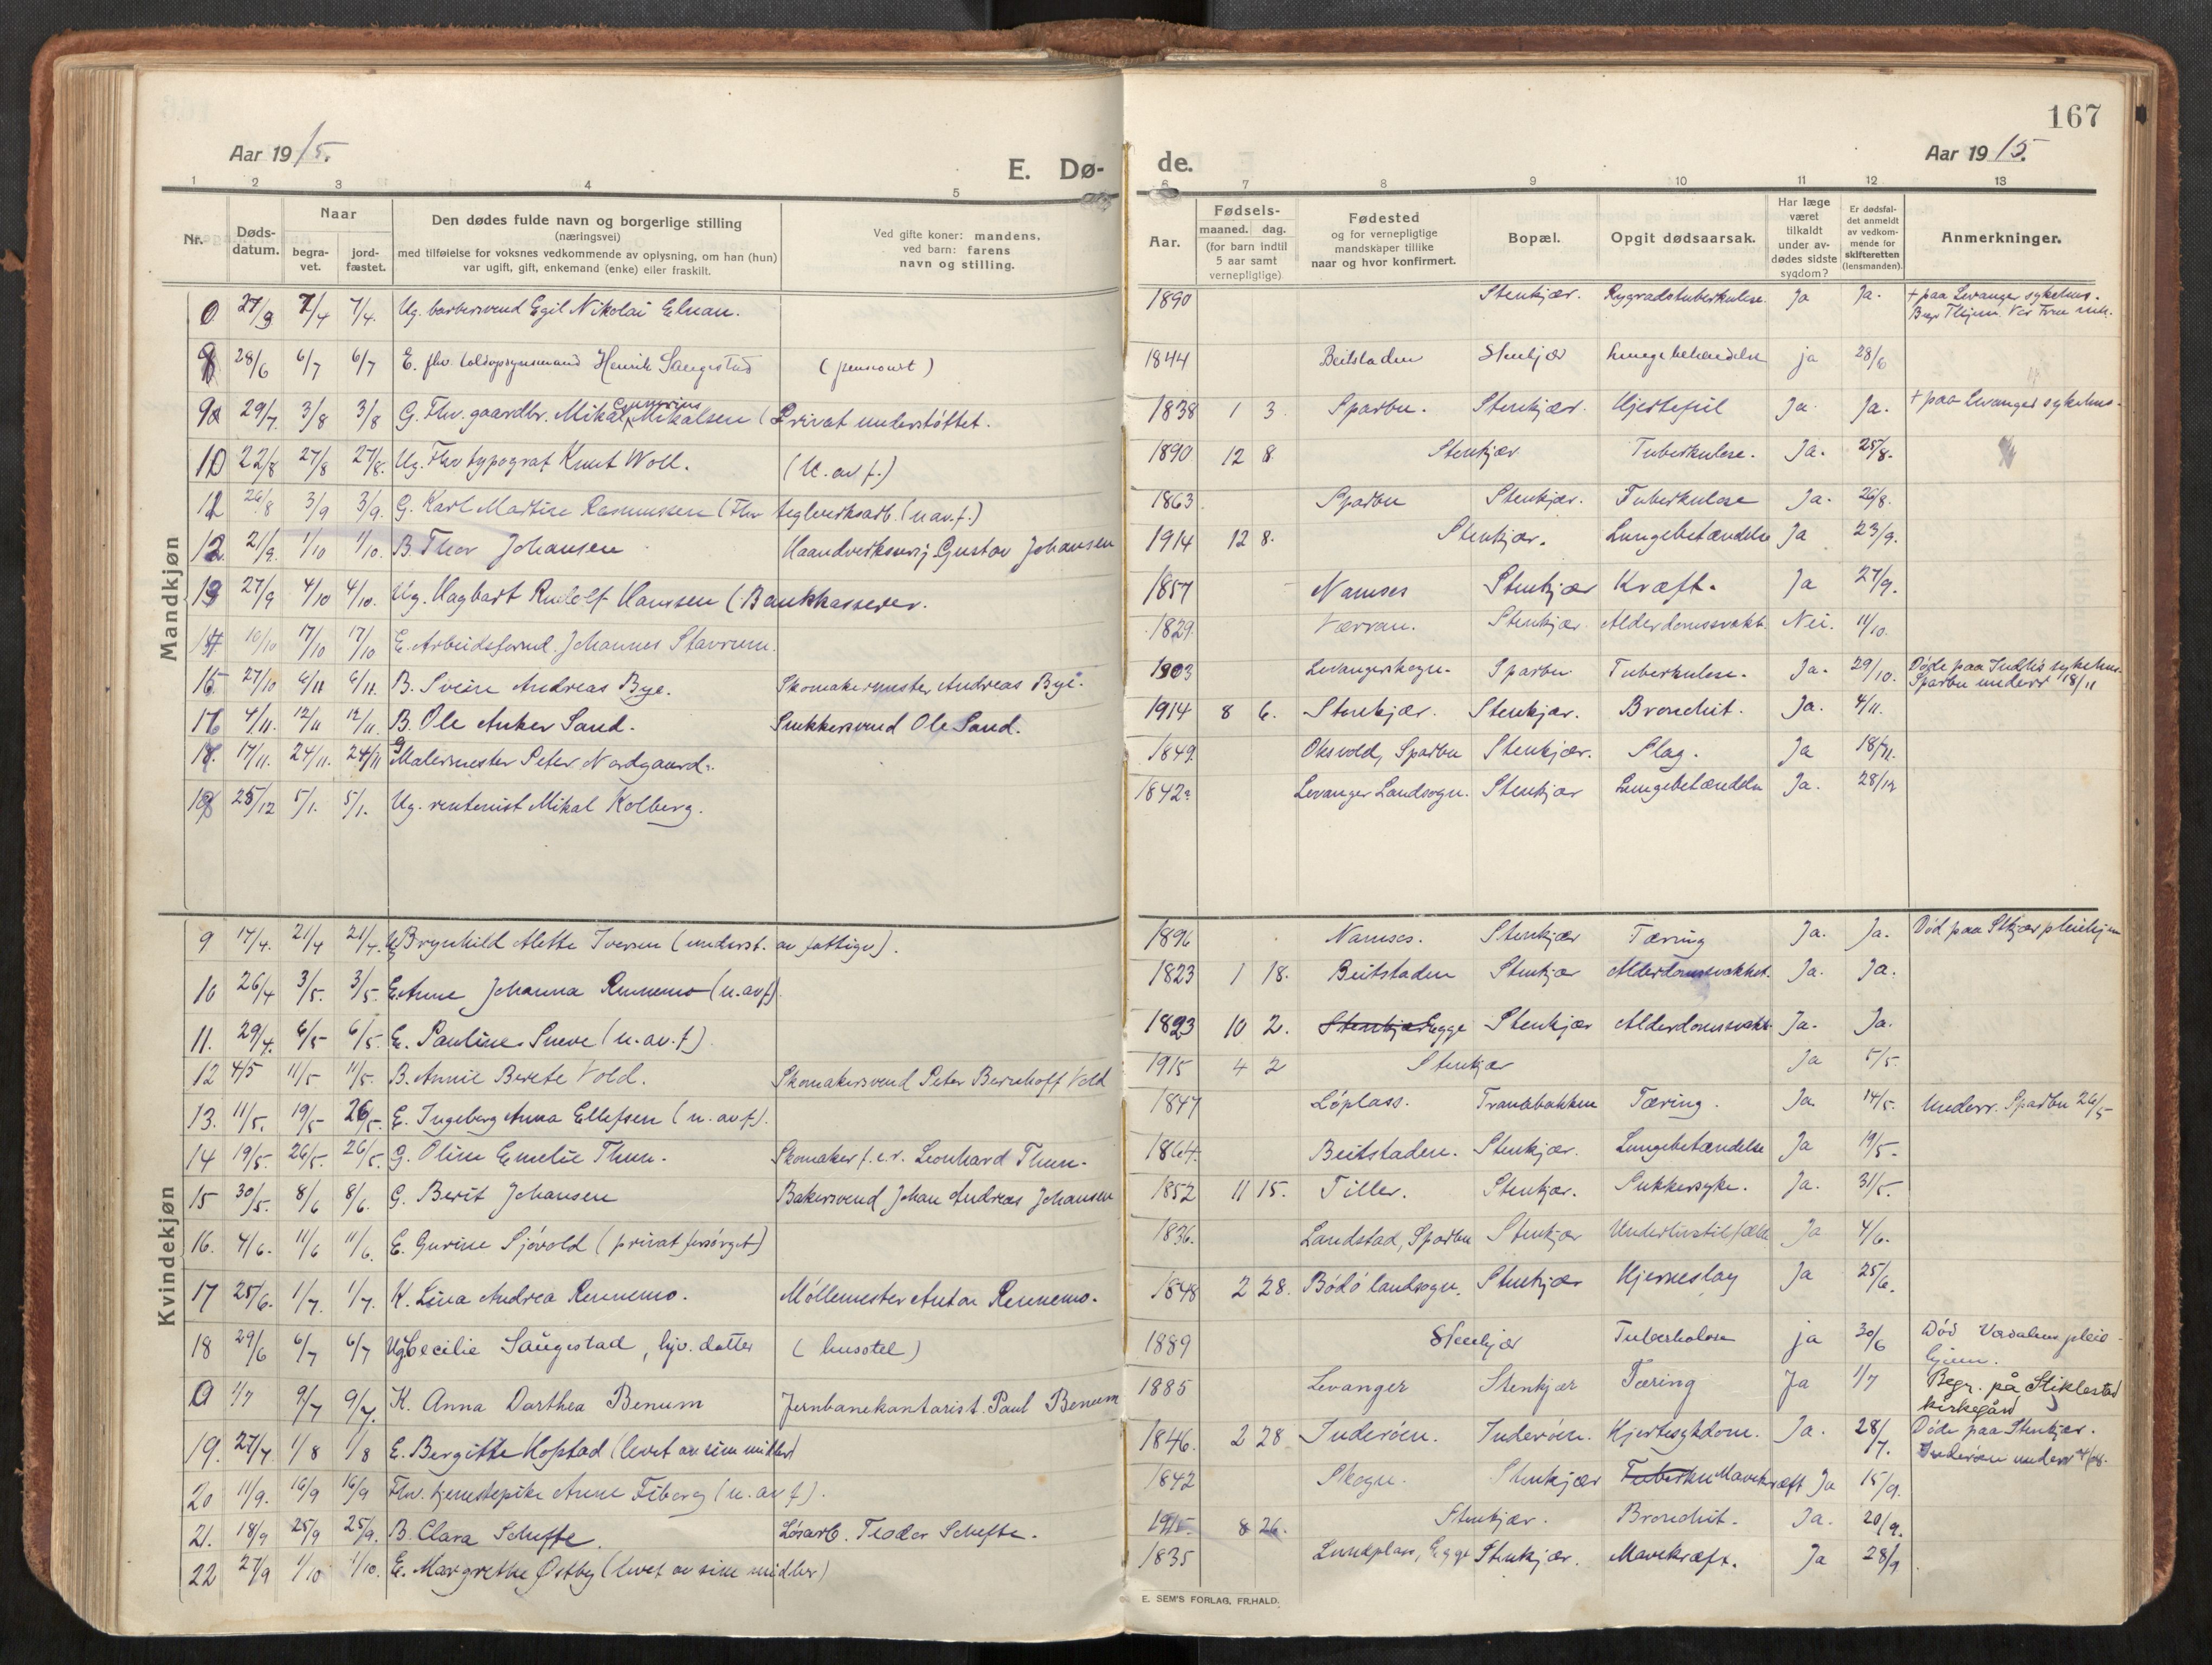 167
Aar 1915.
E. Dø-
de.
Aar 1915.
1 2 3 4 5 6 7 8 9 10 11 12 13
Nr.
Døds-
datum.
Naar
begra-
vet.
jord-
fæstet.
Den dødes fulde navn og borgerlige stilling
(næringsvei)
med tilføielse for voksnes vedkommende av oplysning, om han (hun)
var ugift, gift, enkemand (enke) eller fraskilt.
Ved gifte koner: mandens,
ved barn: farens
navn og stilling.
Aar.
Fødsels-
maaned. dag.
(for barn indtil
5 aar samt
vernepligtige)
Fødested
og for vernepligtige
mandskaper tillike
naar og hvor konfirmert.
Bopæl.
Opgit dødsaarsak.
Har læge
været
tilkaldt
under av-
dødes sidste
sygdom?
Er dødsfal-
det anmeldt
av vedkom-
mende for
skifteretten
(lensmanden).
Anmerkninger.
Mandkjøn
0 27/3 7/4 7/4. Ug. barbersvend Egil Nikolai Elnan. 1890 Stenkjær. Rygradstuberkulose. Ja Ja. + paa Levanger sykehus.
28/6 6/7 6/7 E. fhv. toldopsynsmand Henrik Saugestad (pensionist) 1844 Beitstaden Stenkjær Lungebetændelse ja 28/6
9 29/7 3/8 3/8 G. Fhv. gaardbr. Mikal Mikalsen (Privat understøttet. 1838 1 3. Sparbu. Stenkjær. Hjertefeil Ja. Ja. + paa Levanger sykehus.
10 22/8 27/8 27/8. Ug. Fhv typograf Knut Woll. (U. av f.) 1890 12 8 Stenkjær Tuberkulose. Ja. 25/8.
26/8 3/9 3/9. G. Karl Martin Rasmussen (Fhv teglverksarb. (u av. f.) 1863 Sparbu Stenkjær. Tuberkulose Ja. 26/8.
12 21/9. 1/10 1/10. B. Thor Johansen Haandverkssvej Gustav Johansen 1914 12 8. Stenkjær. Lungebetændelse Ja 23/9.
13 27/9 4/10 4/10. Ug. Hagbart Rudolf Hanssen (Bankkasserer. 1857 Namsos Stenkjær Kræft. Ja 27/9.
14 10/10 17/10 17/10 E. Arbeidsformd. Johannes Stavrum. 1829. Værran. Stenkjær. Alderdomssvakh. Nei. 11/10.
15 27/10 6/11 6/11. B. Svein Andreas Bye. Skomakermester Andreas Bye. 1903 Levangerskogn. Sparbu Tuberkulose. Ja. 29/10. Døde paa sykehus.
Sparbu underr 18/11
16 4/11. 12/11 12/11. B. Ole Anker Sand. Snekkersvend Ole Sand. 1914 8 6. Stenkjær. Stenkjær. Bronchit. Ja. 4/11.
17/11. 24/11. 24/11 G Malermester Peter Nordgaard. 1849. Oksvold, Sparbu Stenkjær. Slag. Ja 18/11.
25/12 5/1. 5/1. Ug. rentenist Mikal Kolberg. 1842 Levanger Landsogn. Stenkjær Lungebetændelse Ja. 28/12
Kvindekjøn
9 17/4. 21/4 21/4. U Brynhild Alette Iversen (underst. av fattigv). 1896 Namsos. Stenkjær Tæring Ja. Ja. Død paa Stkjær pleiehjem
10 26/4 3/5. 3/5. E. Anne Johanna Rennemo (u. av f). 1823 1 18. Beitstaden Stenkjær Alderdomssvakhet. Ja. Ja.
11. 29/4. 6/5 6/5. E. Pauline Sneve (u. av. f). 1823 10 2. Stenkjær Egge Stenkjær Alderdomssvakh. Ja. Ja.
12 4/5 11/5 11/5. B. Annie Berete Vold. Skomakersvend Peter Bernhoff Vold 1915 4 2 Stenkjær Ja 5/5.
13. 11/5. 19/5 26/5. E. Ingeborg Anna Ellefsen (u. av f). 1847 Løplass. Tranabakken Tæring. Ja. 14/5. Underr. Sparbu 26/5
14 19/5. 26/5. 26/5. G. Oline Emelie Thun. Skomaker f. e. r. Leonhard Thun. 1864. Beitstaden. Stenkjær. Lungebetændelse Ja 19/5.
15 30/5. 8/6 8/6. G. Berit Johansen Bakersvend Johan Andreas Johansen 1852 11 15. Tiller. Stenkjær. Sukkersyke. Ja. 31/5.
16. 4/6. 11/6 11/6. E. Gurine Sjøvold (privat forsørget) 1836. Landstad, Sparbu Stenkjær Underlivstilfælde Ja 4/6.
17 25/6. 1/7. 1/7. K. Lina Andrea Rennemo. Møllemester Anton Rennemo. 1848 2 28. Bodø landsogn. Stenkjær Hjerneslag Ja 25/6.
18 29/6 6/7 6/7 Ug Cecilie Saugestad, hjv. datter (husstel) 1889 Stenkjær Tuberkulose ja 30/6 Død Verdalens pleie-
hjem.
0 1/7 9/7 9/7. K. Anna Dorthea Benum Jernbanekontorist. Paul Benum 1885 Levanger Stenkjær Tæring Ja 1/7 Begr. på Stiklestad
kirkegård
19. 27/7 1/8 1/8 E. Bergitte Hofstad (levet av sine midler) 1846. 2 28 Inderøen. Inderøen. Hjertesykdom. Ja. 28/7. Døde paa Stenkjær.
Inderøen underr 4/08.
20 11/9. 16/9 16/9 Fhv. tjenestepike Anne Fiborg (u. av f). 1842 Skogn. Stenkjær Tuberku Mavekræft Ja 15/9.
21. 18/9 25/9 25/9. B. Clara Schefte. Løsarb. Teodor Schefte. 1915 8 26. Stenkjær. Bronchit. Ja. 20/9.
22 27/9 1/10 1/10. E. Margrethe Østby (levet av sine midler) 1835 Lundplass, Egge Stenkjær. Mavekræft. Ja 28/9
E. SEM'S FORLAG, FR.HALD.